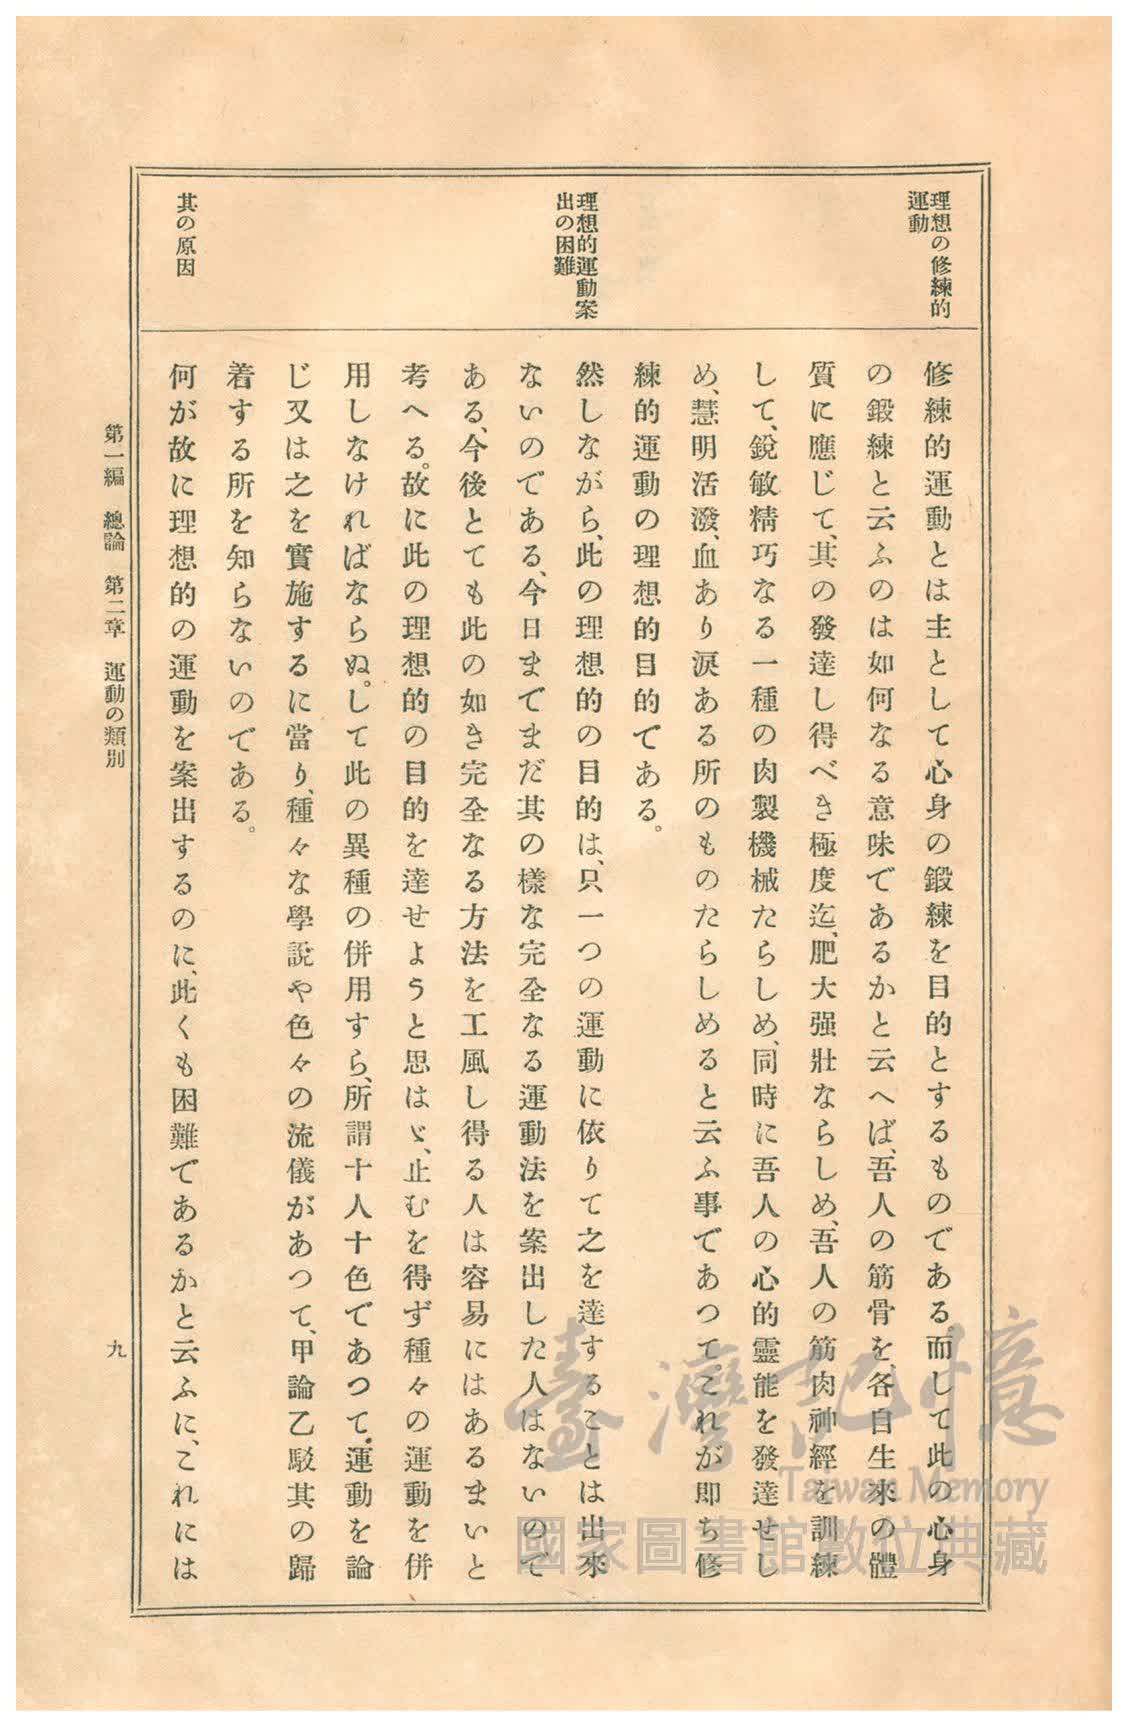 理想の修練的
運動
理想的運動案
出の困難
其の原因
修練的運動とは主として心身の鍛練を目的とするものである而して此の心身
の鍛練と云ふのは如何なる意味であるかと云へば、吾人の筋骨を、各自生來の體
質に應じて、其の發達し得べき極度迄、肥大强壯ならしめ、吾人の筋肉神經を訓練
して、銳敏精巧なる一種の肉製機械たらしめ、同時に吾人の心的靈能を發達せし
め、慧明活潑、血あり淚ある所のものたらしめると云ふ事であつて、これが即ち修
練的運動の理想的目的である。
然しながら、此の理想的の目的は、只一つの運動に依りて之を達することは出來
ないのである、今日までまだ其の樣な完全なる運動法を案出した人はないので
ある、今後とても此の如き完全なる方法を工風し得る人は容易にはあるまいと
考へる。故に此の理想的の目的を達せようと思はゞ、止むを得ず種々の運動を併
用しなければならぬ。して此の異種の併用すら、所謂十人十色であつて、運動を論
じ又は之を實施するに當り、種々な學說や色々の流儀があつて、甲論乙駁其の歸
着する所を知らないのである。
何が故に理想的の運動を案出するのに、此くも困難であるかと云ふに、これには
第一編 總論 第二章 運動の類別
九
臺灣記憶
Taiwan Memory
國家圖書館數位典藏